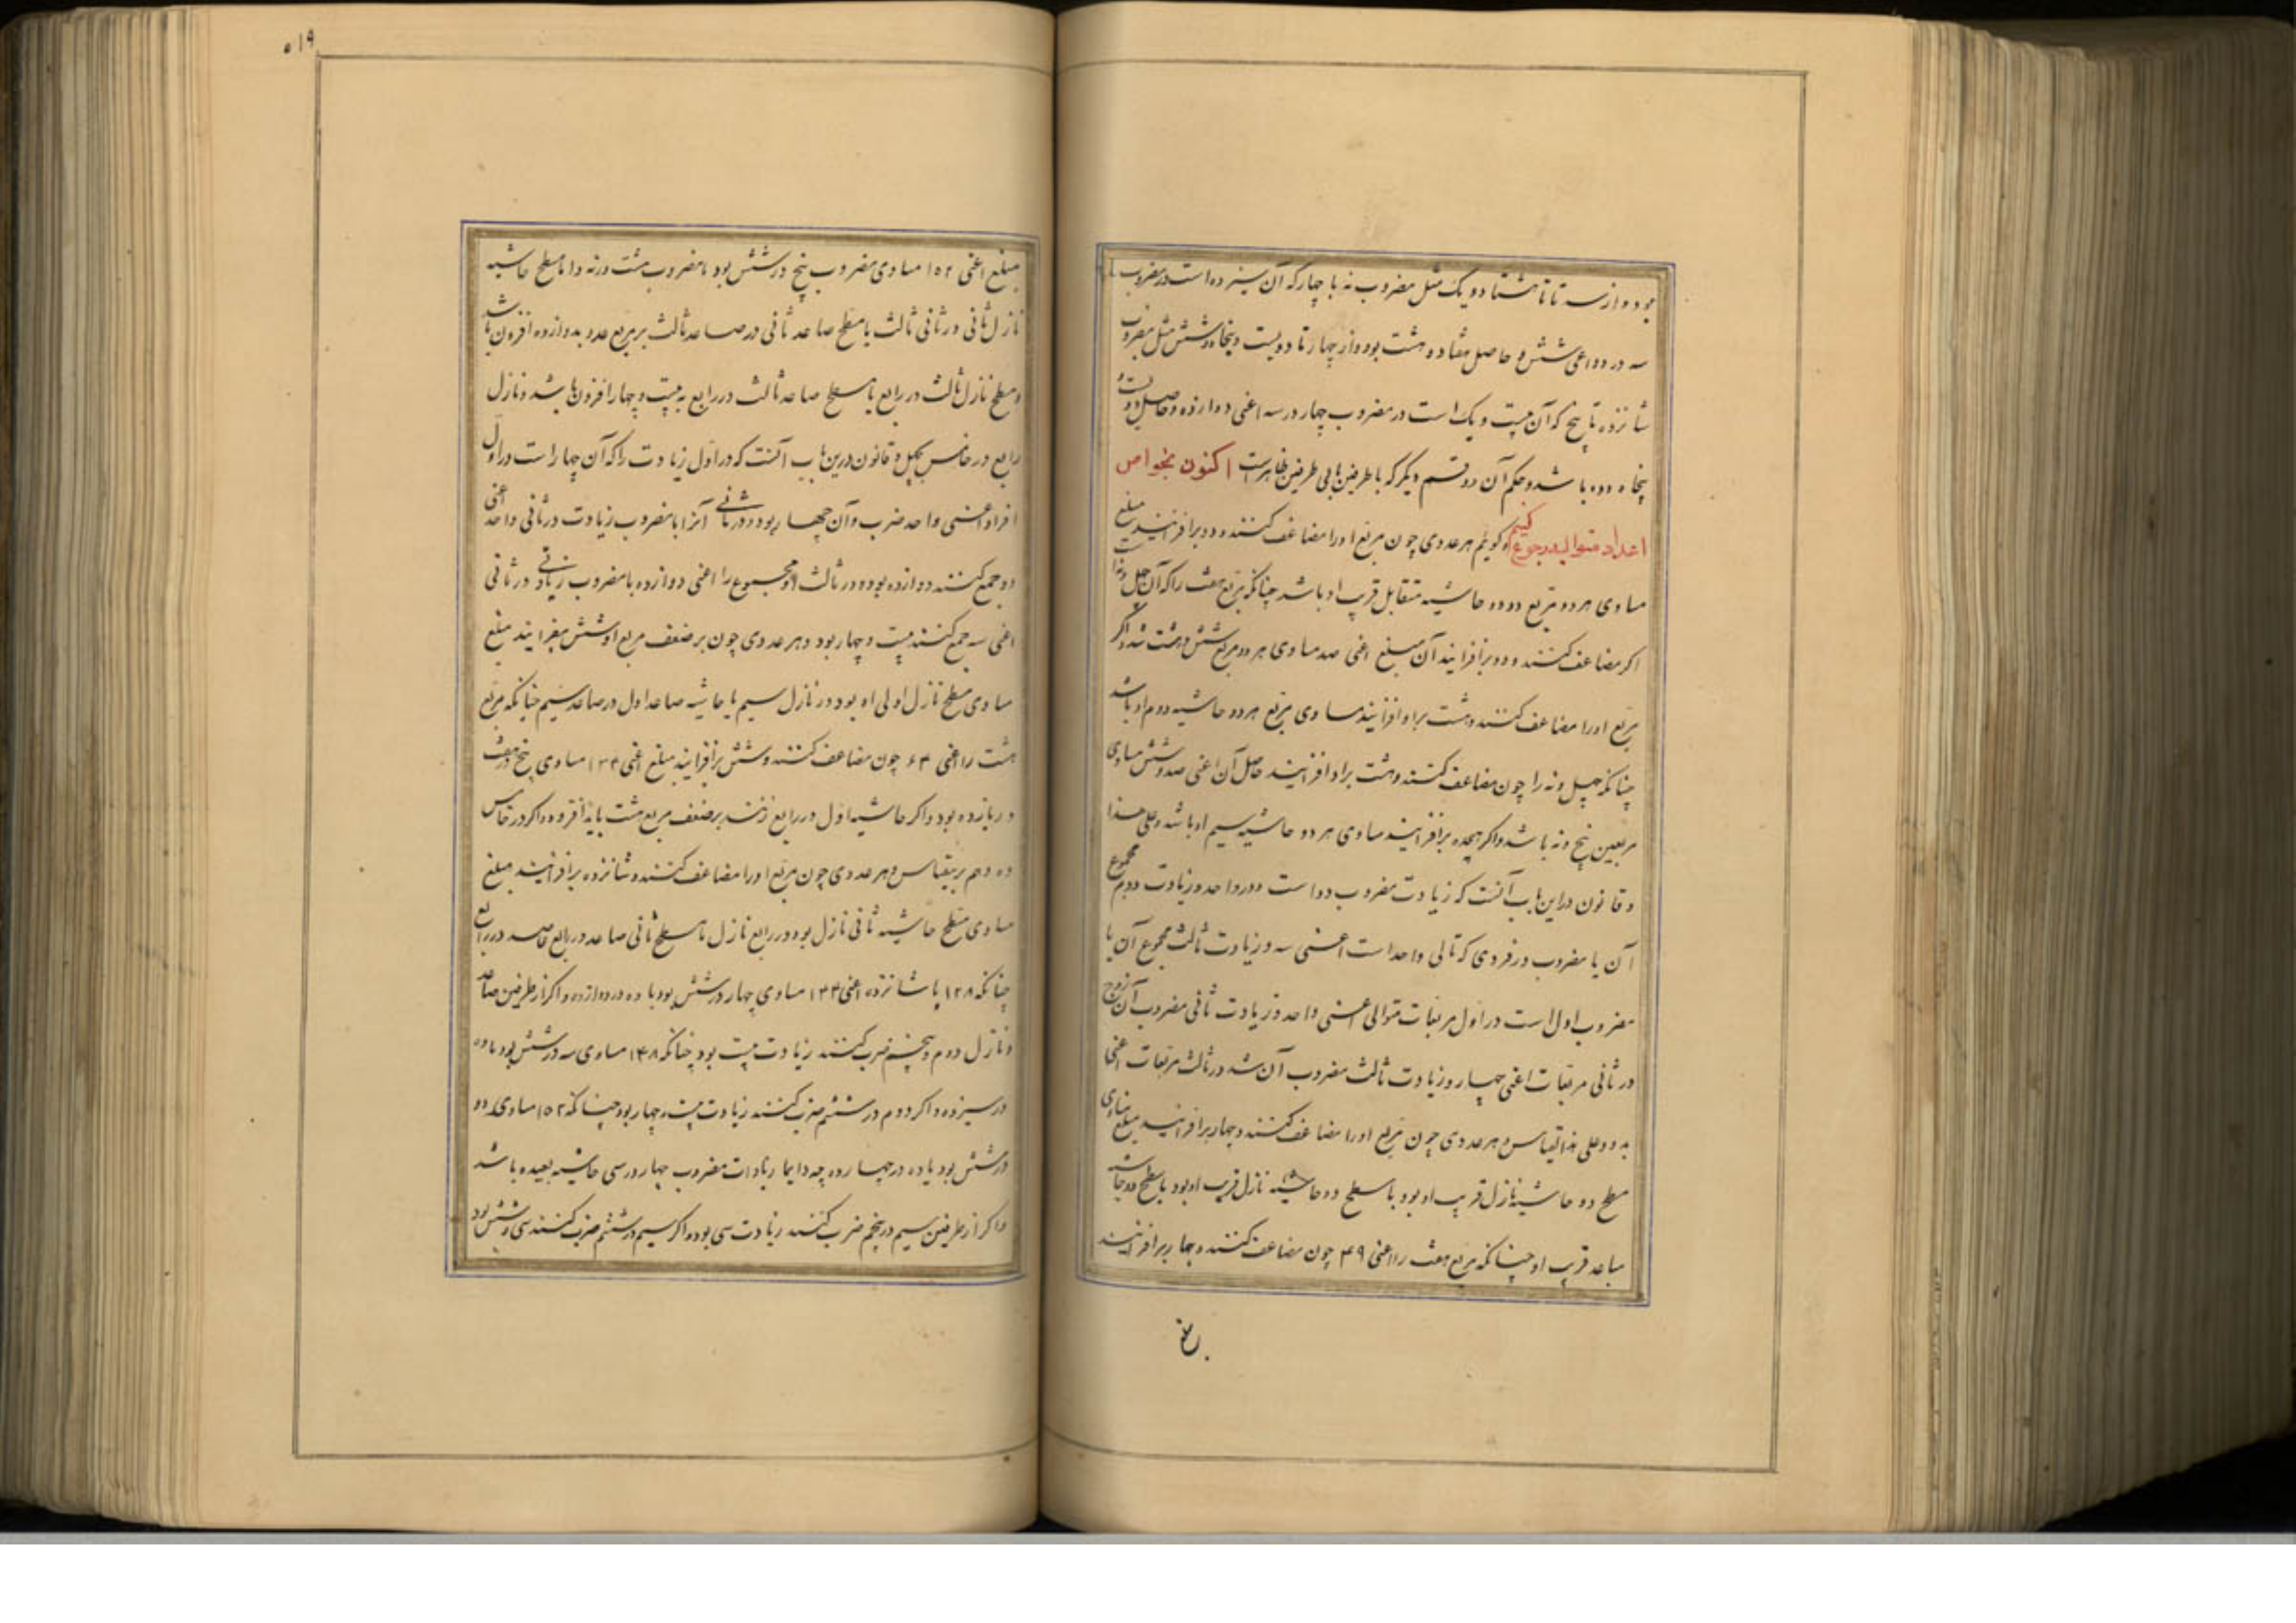 بود و از سه تا تا هشتاد و یک مثل مضروب نه با چهار که آن سیزده است در مضروب
سه در دو اعنی شش و حاصل هفتاد و هشت بود و از چهار تا دویست و پنجاه و شش مثل مضروب
شانزده تا پنج که آن بیست و یک است در مضروب چهار در سه اعنی دوازده و حاصل دویست و
پنجاه و دو باشد و حکم آن دو قسم دیگر که با طرفین یا بی طرفین ظاهرست اکنون بخواص
اعداد متوالیه رجوع کنیم و گوئیم هر عددی چون مربع او را مضاعف کنند و دو برافزایند مبلغ
مساوی هر دو مربع دو حاشیه متقابل قریب او باشد چنانکه مربع هفت را که آن چهل و نه است
اگر مضاعف کنند و دو برافزایند آن مبلغ اعنی صد مساوی هر دو مربع شش و هشت شد و اگر
مربع او را مضاعف کنند و هشت بر او افزایند مساوی مربع هر دو حاشیه دوم او باشد
چنانکه چهل و نه را چون مضاعف کنند و هشت بر او افزایند حاصل آن اعنی صد و شش مساوی
مربعین پنج و نه باشد و اگر هیجده برافزایند مساوی هر دو حاشیه سیم او باشد و علی هذا
و قانون در این باب آنست که زیادت مضروب دو است در واحد و زیادت دوم مجموع
آن با مضروب در فردی که تالی واحد است اعنی سه و زیادت ثالث مجموع آن با
مضروب اول است در اول مربعات متوالی اعنی واحد و زیادت ثانی مضروب آن زوج
در ثانی مربعات اعنی چهار و زیادت ثالث مضروب آن شد در ثالث مربعات اعنی
به دو و علی هذا القیاس و هر عددی چون مربع او را مضاعف کنند و چهار برافزایند مبلغ مساوی
سطح دو حاشیه نازل قریب او بود با سطح دو حاشیه نازل قریب او بود با سطح دو حاشیه
صاعد قریب او چنانکه مربع هفت را اعنی ۴۹ چون مضاعف کنند و چهار برافزایند
۵۱۹
مبلغ اعنی ۱۵۲ مساوی مضروب پنج در شش بود با مضروب هشت در نه و اما سطح حاشیه
نازل ثانی در ثانی ثالث با سطح صاعد ثانی در صاعد ثالث بر مربع عدد بدوازده افزون باشد
و سطح نازل ثالث در رابع با سطح صاعد ثالث در رابع به بیست و چهار افزون باشد و نازل
رابع در خامس بچهل و قانون درین باب آنست که در اول زیادت را که آن چهار است در اول
افراد اعنی واحد ضرب و آن چهار بود و در ثانی آنرا با مضروب زیادت در ثانی واحد اعنی
دو جمع کنند دوازده بود و در ثالث مجموع را اعنی دوازده با مضروب زیادتی در ثانی
اعنی سه جمع کنند بیست و چهار بود و هر عددی چون بر ضعف مربع او شش بیفزایند مبلغ
مساوی سطح نازل اولی او بود در نازل سیم با حاشیه صاعد اول در صاعد سیم چنانکه مربع
هشت را اعنی ۶۴ چون مضاعف کنند و شش برافزایند مبلغ اعنی ۱۳۴ مساوی پنج در هفت
در یازده بود و اگر حاشیه اول در رابع زنند بر ضعف مربع هشت باید افزود و اگر در خامس
ده و هم برینقیاس و هر عددی چون مربع او را مضاعف کنند و شانزده برافزایند مبلغ
مساوی سطح حاشیه ثانی نازل بود در رابع نازل با سطح ثانی صاعد در رابع
چنانکه ۱۲۸ با شانزده اعنی ۱۴۴ مساوی چهار در شش بود با ده در دوازده و اگر از طرفین صاعد
و نازل دوم و پنجم ضرب کنند زیادت بیست بود چنانکه ۱۴۸ مساوی سه در شش بود با ده
در سیزده و اگر دوم در ششم ضرب کنند زیادت بیست و چهار بود چنانکه ۱۵۲ مساوی دو
در شش بود با ده در چهارده چه دایما زیادات مضروب چهار در سی حاشیه بعیده باشد
و اگر از طرفین سیم در پنجم ضرب کنند زیادت سی بود و اگر سیم در ششم ضرب کنند سی و شش بود